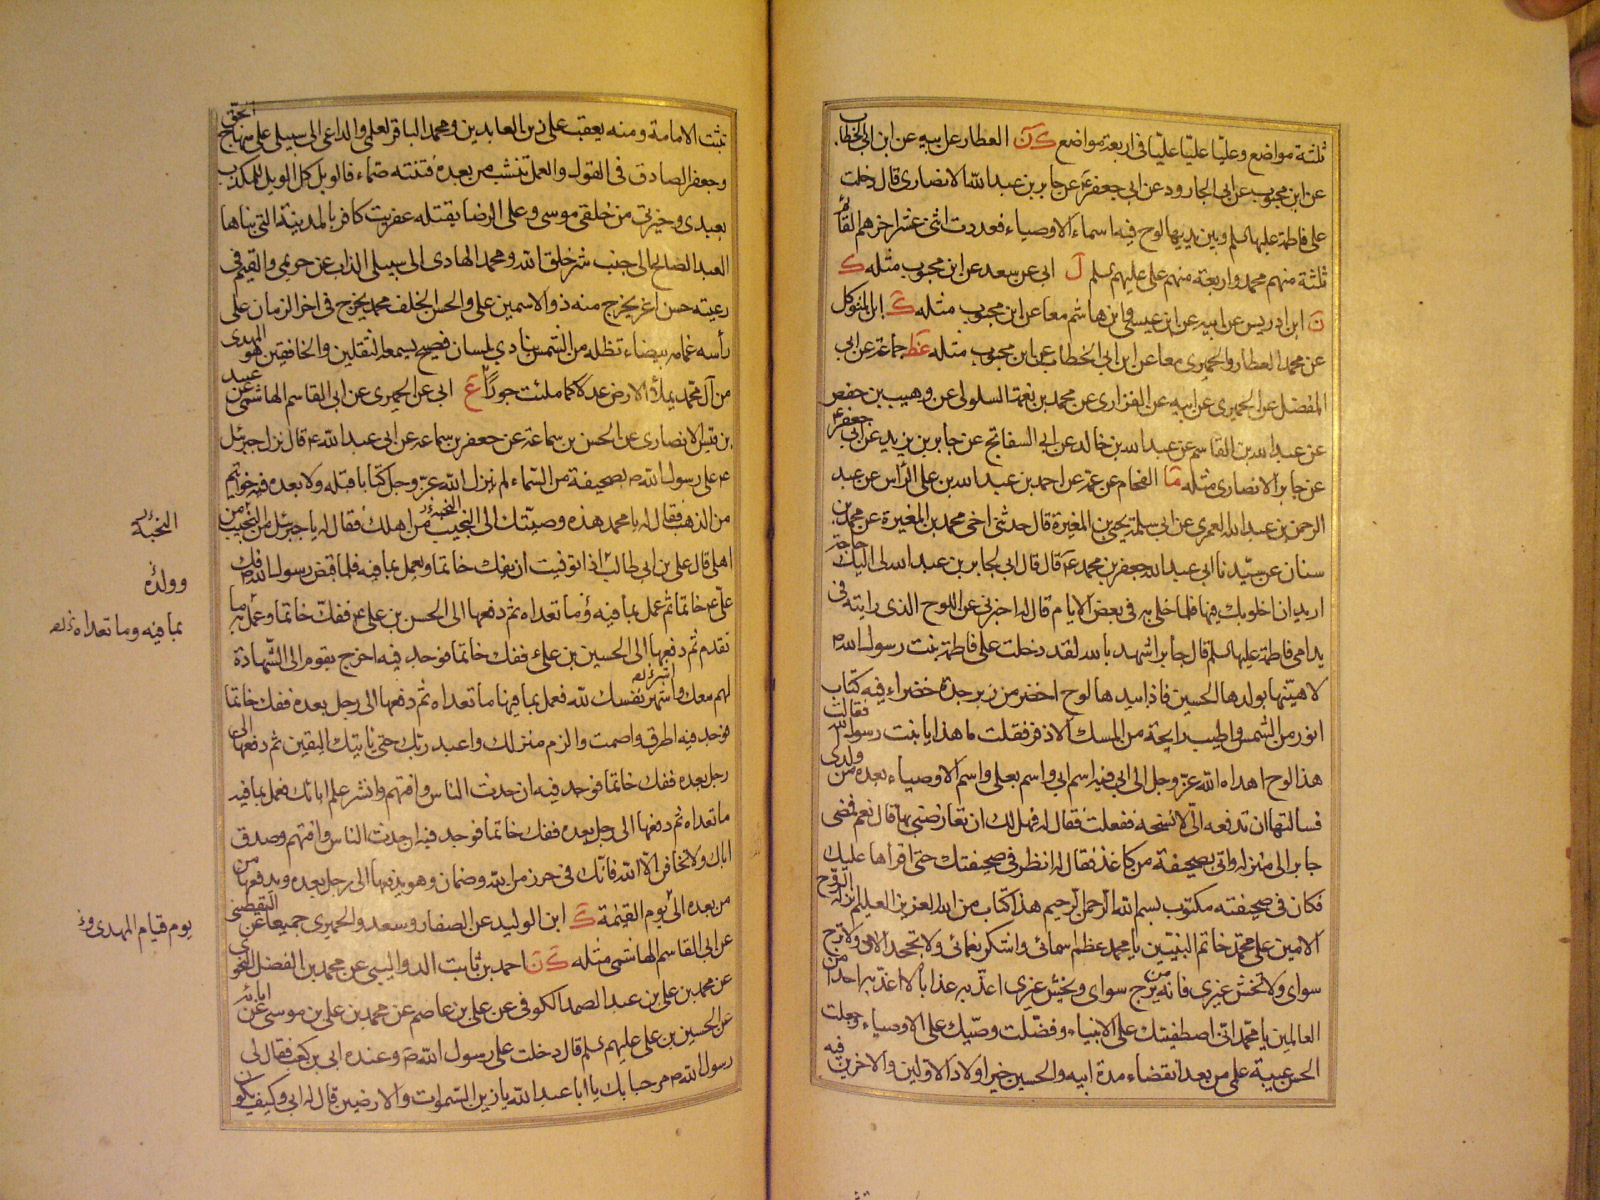 ثلثة مواضع وعليّا عليّا عليّا في اربعة مواضع ك ن العطار عن ابيه عن ابن ابى الخطاب
عن ابن محبوب عن ابى الجارود عن ابى جعفر ع عن جابر بن عبد الله الانصارى قال دخلت
على فاطمة عليها السلم وبين يديها لوح فيه اسماء الاوصياء فعددت اثنى عشر اخرهم القائم
ثلثة منهم محمد واربعة منهم على عليهم السلم ل ابى عن سعد عن ابن محبوب مثله ك
ن ابن ادريس عن ابيه عن ابن عيسى وابن هاشم معا عن ابن محبوب مثله ك ابن المتوكل
عن محمد العطار والحميرى معا عن ابن ابى الخطاب عن ابن محبوب مثله غط جماعة عن ابى
المفضل عن الحميرى عن ابيه عن الفزارى عن محمد بن نعمة السلولى عن وهيب بن حفص
عن عبد الله بن القاسم عن عبد الله بن خالد عن ابى السفاتج عن جابر بن يزيد عن ابى جعفر ع
عن جابر الانصارى مثله ما الفحام عن عمه عن احمد بن عبد الله بن على الرأس عن عبد
الرحمن بن عبد الله العمرى عن ابى سلمة يحيى بن المغيرة قال حدثنى اخى محمد بن المغيرة عن محمد بن
سنان عن سيّدنا ابى عبد الله جعفر بن محمد ع قال قال ابى لجابر بن عبد الله لى اليك حاجة
اريد ان اخلو بك فيها فلما خلى به فى بعض الايام قال له اخبرنى عن اللوح الذى رايته فى
يد امى فاطمة عليها السلم قال جابر اشهد بالله لقد دخلت على فاطمة بنت رسول الله ص
لاهنّيها بولدها الحسين فاذا بيدها لوح اخضر من زبرجدة خضراء فيه كتاب
انور من الشمس واطيب رايحة من المسك الاذفر فقلت ما هذا يا بنت رسول الله فقالت
هذا لوح اهداه الله عزّ وجل الى ابى فيه اسم ابى واسم بعلى واسم الاوصياء بعده من ولدى
فسالتها ان تدفعه الىّ لانسخه ففعلت فقال له فهل لك ان تعارضنى بها قال نعم فمضى
جابر الى منزله واتى بصحيفة من كاغذ فقال له انظر فى صحيفتك حتى اقراها عليك
فكان فى صحيفته مكتوب بسم الله الرحمن الرحيم هذا كتاب من الله العزيز العليم انزله الروح
الامين على محمّد خاتم النبيّين يا محمد عظم اسمائى واشكر نعمائى ولا تجحد الائى ولا ترج
سواى ولا تخش غيرى فانه من يرج سواى ويخش غيرى اعذّبه عذابا لا اعذّبه احدا من
العالمين يا محمّد انّى اصطفيتك على الانبياء وفضّلت وصيّك على الاوصياء وجعلت
الحسن عيبة علمى من بعد انقضاء مدة ابيه والحسين خير اولاد الاوّلين والاخرين فيه
تثبت الامامة ومنه يعقب على زين العابدين ومحمد الباقر لعلمى والداعى الى سبيلى على منهاج الحقّ
وجعفر الصادق فى القول والعمل تنشب من بعده فتنة صمّاء فالويل كل الويل للمكذب
بعبدى وخيرتى من خلقى موسى وعلى الرضا يقتله عفريت كافر بالمدينة التى بناها
العبد الصالح الى جنب شر خلق الله ومحمد الهادى الى سبيلى الذاب عن حريمى والقيم فى
رعيته حسن اغر يخرج منه ذو الاسمين على والحسن الخلف محمد يخرج فى اخر الزمان على
رأسه غمامة بيضاء تظله من الشمس ينادى بلسان فصيح يسمعه الثقلين والخافقين هو المهدى
من آل محمّد يملأ الارض عدلا كما ملئت جورًا ع ابى عن الحميرى عن ابى القاسم الهاشمى عن عبيد
بن قيس الانصارى عن الحسن بن سماعة عن جعفر بن سماعة عن ابى عبد الله ع قال نزل جبرئل
ع على رسول الله ص بصحيفة من السّماء لم ينزل الله عزّ وجل كتابا قبله ولا بعده فيه خواتيم
من الذهب فقال له يا محمد هذه وصيّتك الى النجيب من اهلك فقال له يا جبرئل من النجيب من
اهلى قال على بن ابى طالب اذا توفيت ان يفك خاتما ويعمل بما فيه فلما قبض رسول الله ص فك
علىّ ع خاتما ثم عمل بما فيه وما تعداه ثم دفعها الى الحسن بن على ع ففك خاتما وعمل بما
تقدم ثم دفعها الى الحسين بن على ع ففك خاتما فوجد فيه اخرج بقوم الى الشّهادة
لهم معك واشهر نفسك لله فعمل بما فيها ما تعداه ثم دفعها الى رجل بعده ففك خاتما
فوجد فيه اطرق واصمت والزم منزلك واعبد ربك حتى ياتيك اليقين ثم دفعها الى
رجل بعده ففك خاتما فوجد فيه ان حدث الناس وافتهم وانشر علم ابائك فعمل بما فيه
ما تعداه ثم دفعها الى رجل بعده ففك خاتما فوجد فيه ان حدث الناس وافتهم وصدق
اباك ولا تخافن الّا الله فانّك فى حرز من الله وضمان وهو يدفعها الى رجل بعده ويدفعها من
من بعده الى يوم القيمة ك ابن الوليد عن الصفار وسعد والحميرى جميعا عن اليقطينى
عن ابى القاسم الهاشمى مثله ك ن احمد بن ثابت الدواليبى عن محمد بن الفضل النحوى
عن محمد بن على بن عبد الصمد الكوفى عن على بن عاصم عن محمد بن على بن موسى عن ابائه
عن الحسين بن على عليهم السلم قال دخلت على رسول الله ص وعنده ابى بن كعب فقال لى
رسول الله ص مرحبا بك يا ابا عبد الله يا زين السموات والارضين قال له ابى وكيف يكون
النجبة
وولده
بما فيه وما تعداه
يوم قيام المهدى